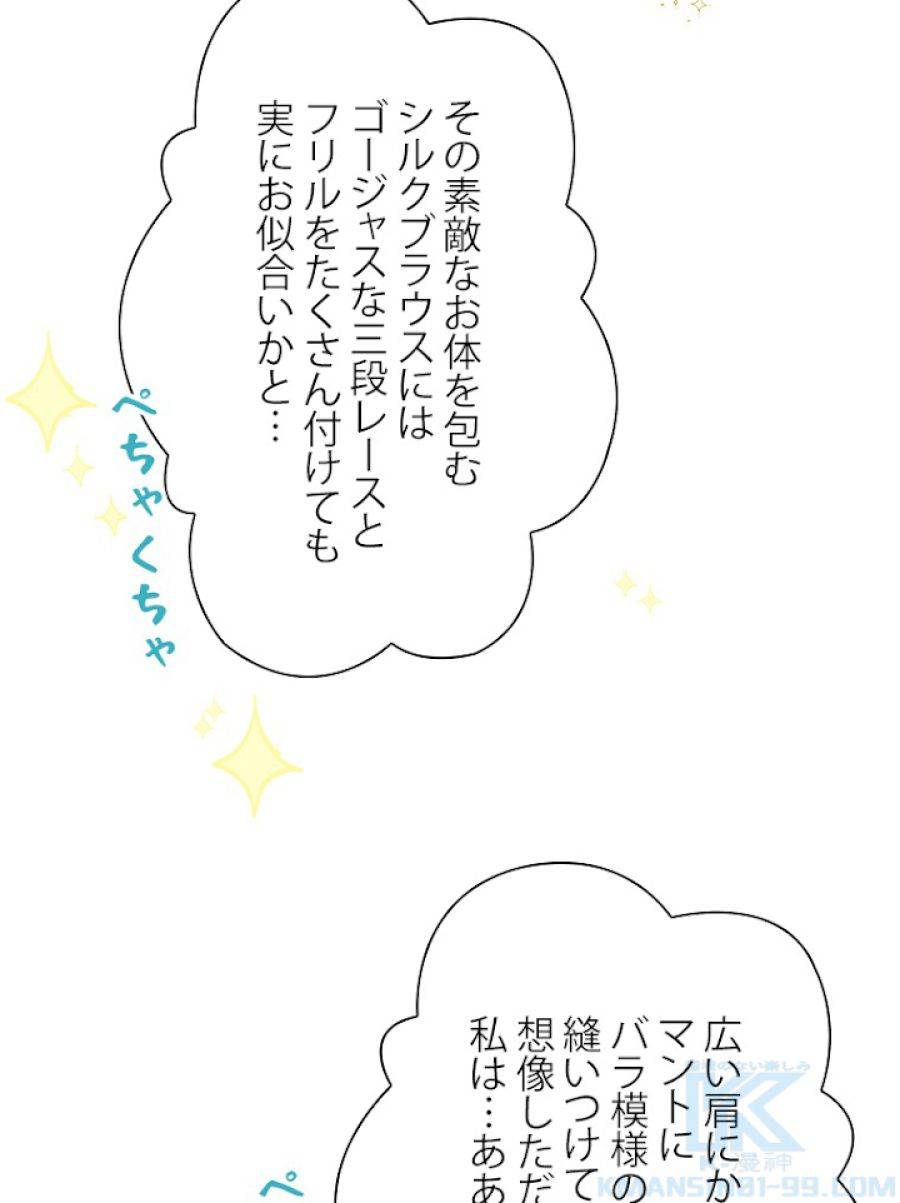 その素敵なお体を包む
シルクブラウスには
ゴージャスな三段レースと
フリルをたくさん付けても
実にお似合いかと…
ぺちゃくちゃ
広い肩にか
マントに
バラ模様の
縫いつけて
想像しただ
私は…ああ
ぺ
K-漫神
KMANSIN01-99.COM